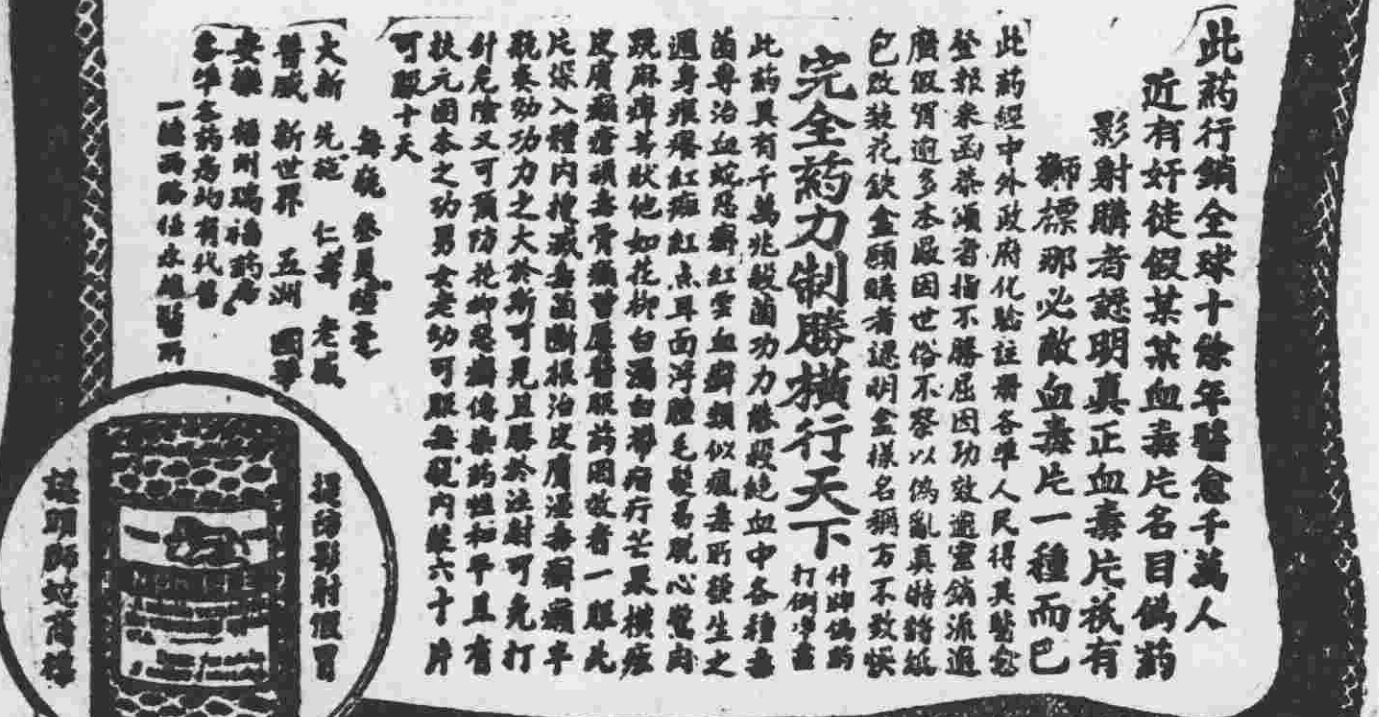 此药行銷全球十餘年醫愈千萬人
近有奸徒假某某血毒片名目偽药
影射購者認明真正血毒片祇有
獅標那必敵血毒片一種而巴
此药經中外政府化驗註册各準人民得其醫愈
登報来函恭頌者指不勝屈因功效遒靈銷流遒
廣假冒遒多本廠因世俗不察以偽亂真特將紙
包改裝花鉄盒顧購者認明盒樣名稱方不致悮
完全药力制勝橫行天下
什脚偽药
打倒冲盡
此药具有千萬兆殺菌功力能殺絕血中各種毒
菌專治血蛇惡癬紅雲血癬類似瘋毒所發生之
週身痕癢紅斑紅点耳面浮腫毛髮易脱心驚肉
跳麻痺等狀他如花柳白濁白帶疳疔芒果橫痃
皮膚癩瘡頑毒骨痛曾屢醫服药罔效者一服此
片深入體內搜滅毒菌斷根治皮膚濕毒癬癩半
瓶奏功功力之大於斯可見且勝於注射可免打
針危險又可預防花柳惡癬傳染药性和平且有
扶元固本之功男女老幼可服每瓶內裝六十片
可服十天
每瓶 叁員陸毫
大新 先施 仁壽 老威
普威 新世界 五洲 國華
安樂 福州瑞福药房
各埠各药房均有代售
一德西路任永雄醫所
提防影射假冒
認明獅蛇商標